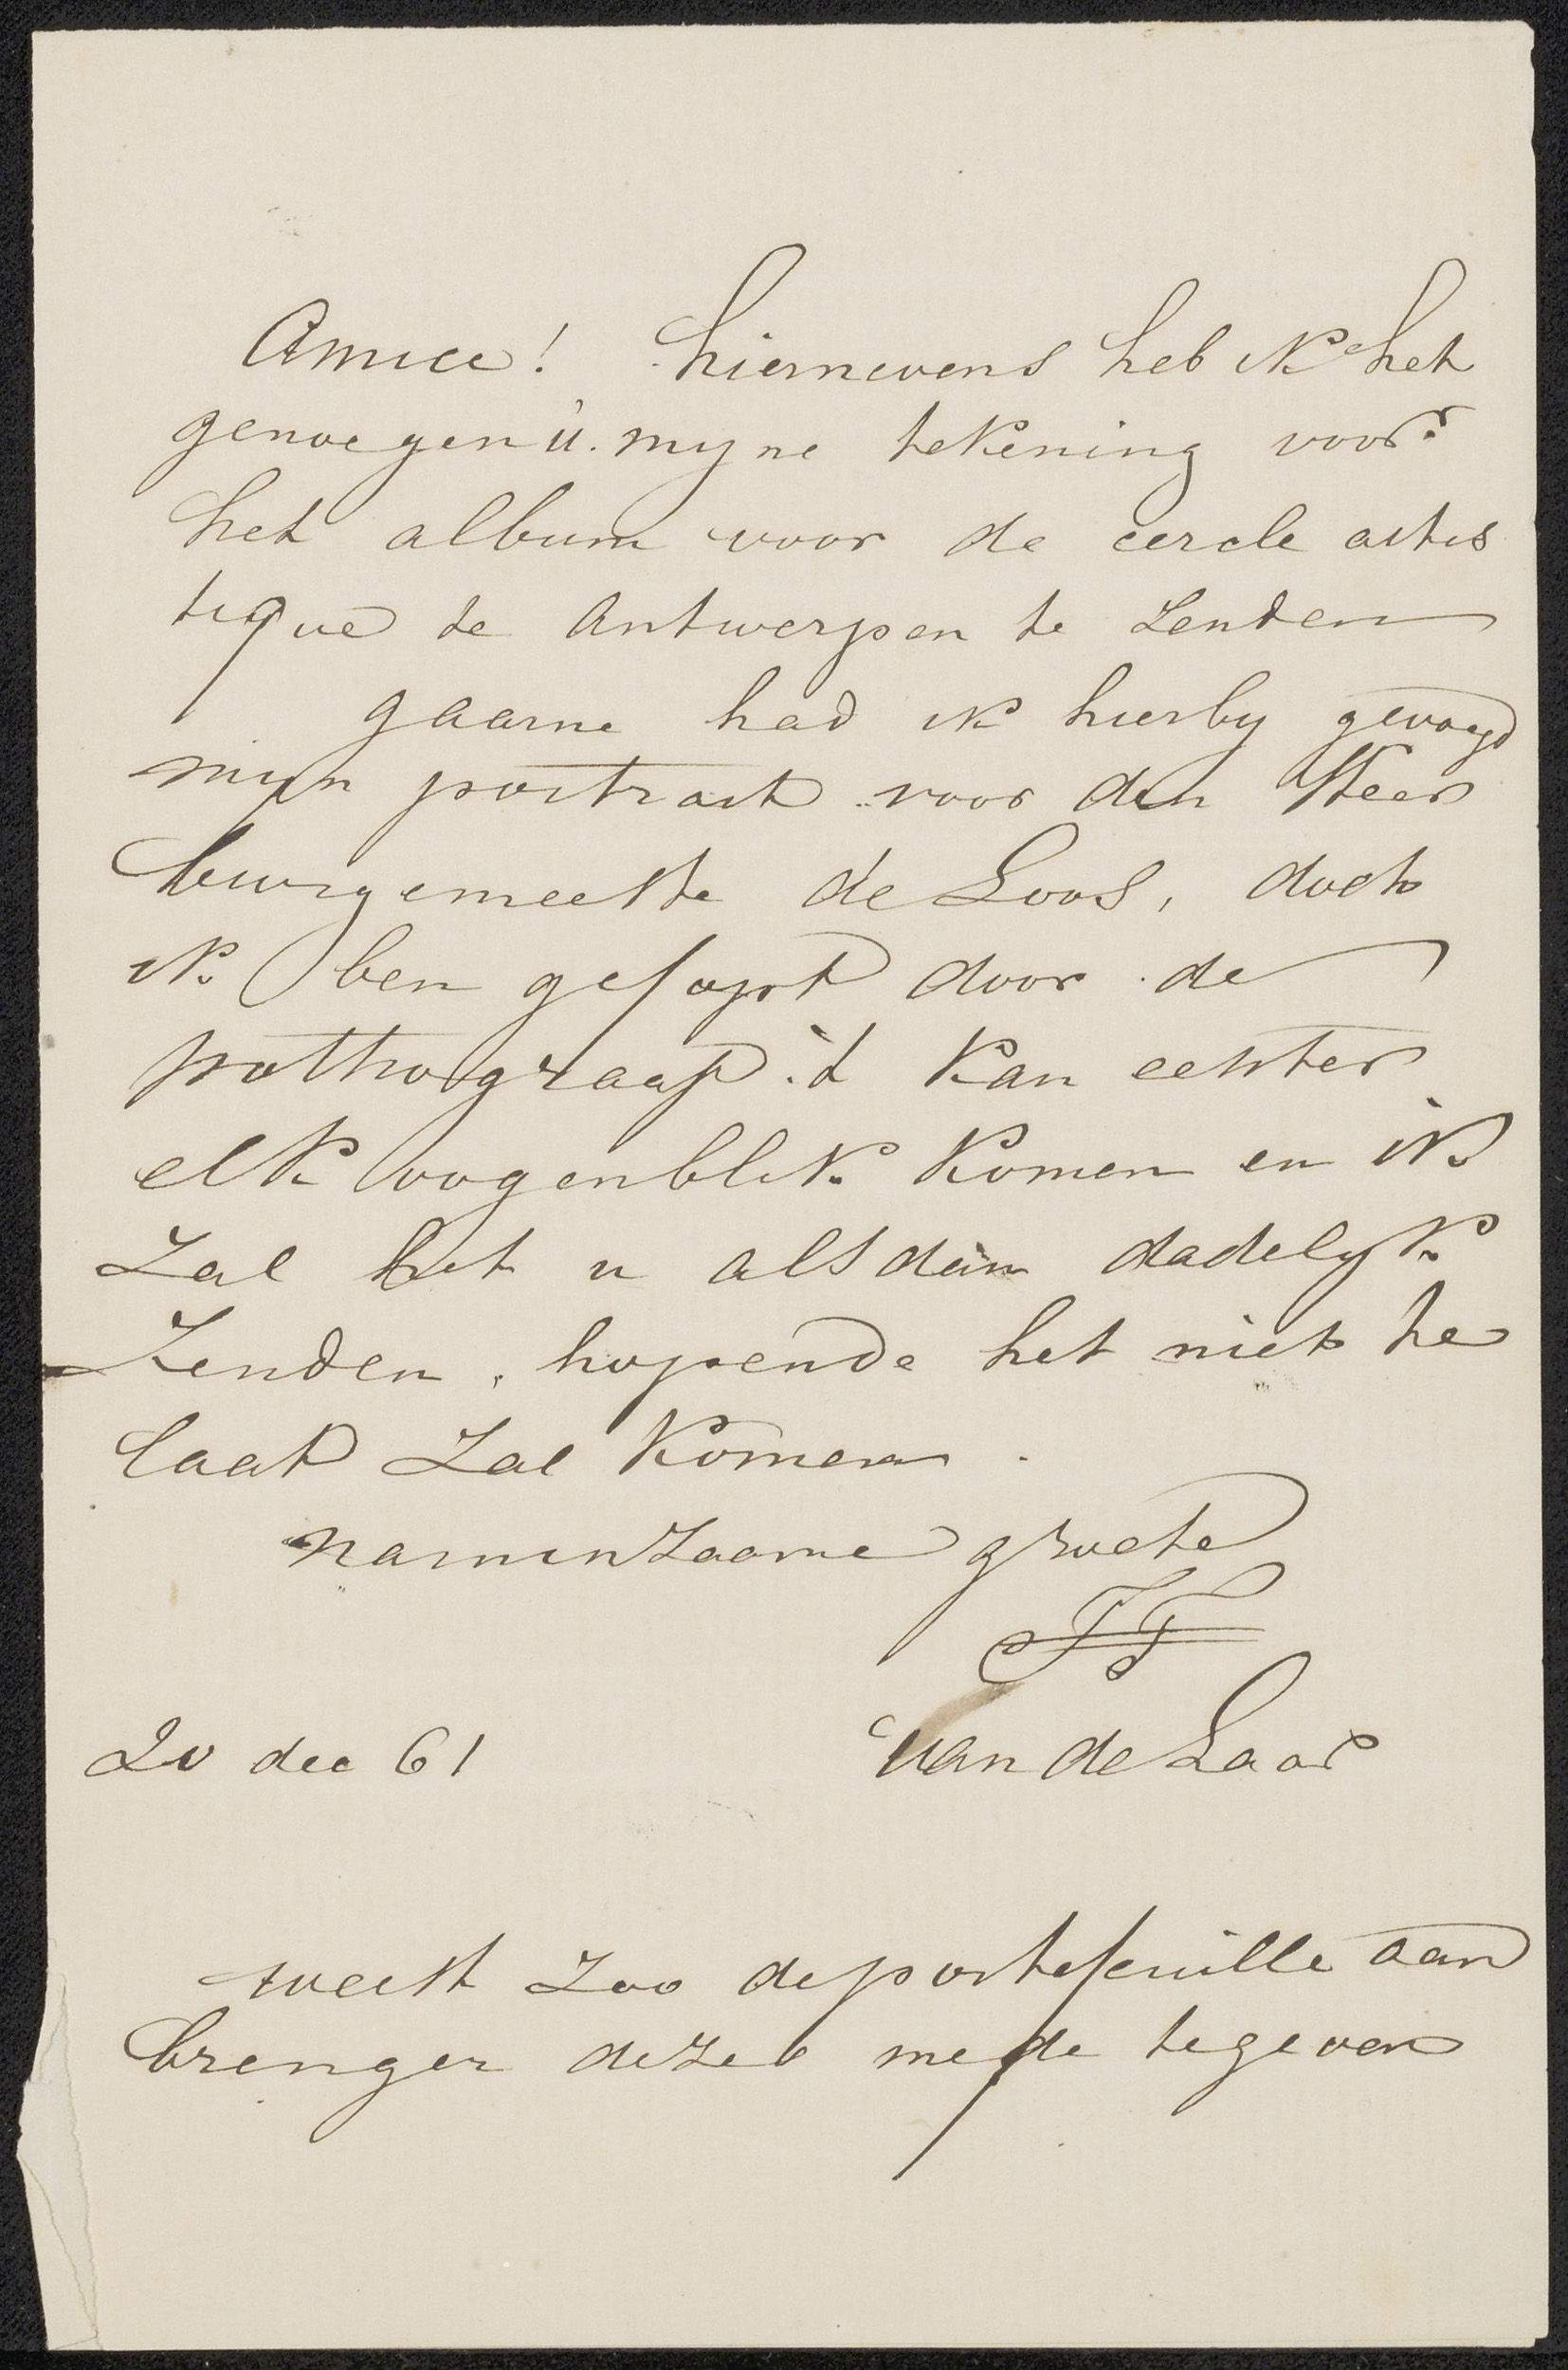 Amice! hiernevens heb ik het
genoegen u. myne tekening voor
het album voor de cercle artis
tique de Antwerpen te zenden
gaarne had ik hierby gevoegd
mijn portrait voor den Heer
burgemeester de Loos, doch
ik ben gefopt door de
pothograaf 't kan echter
elk oogenblik komen en ik
zal het u als dan dadelyk
zenden, hopende het niet te
laat zal komen.
naminzaame groete
van de Laar
20 dec 61
weest zoo de portefeuille aan
brenger dezer mede tegeven